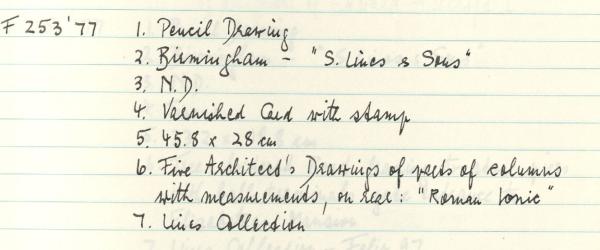 F 253'77 1. Pencil Drawing
2. Birmingham - "S. Lines & Sons"
3. N.D.
4. Varnished Card with stamp
5. 45.8 x 28 cm
6. Five Architect's Drawings of parts of columns
with measurements, on rear: "Roman Ionic"
7. Lines Collection